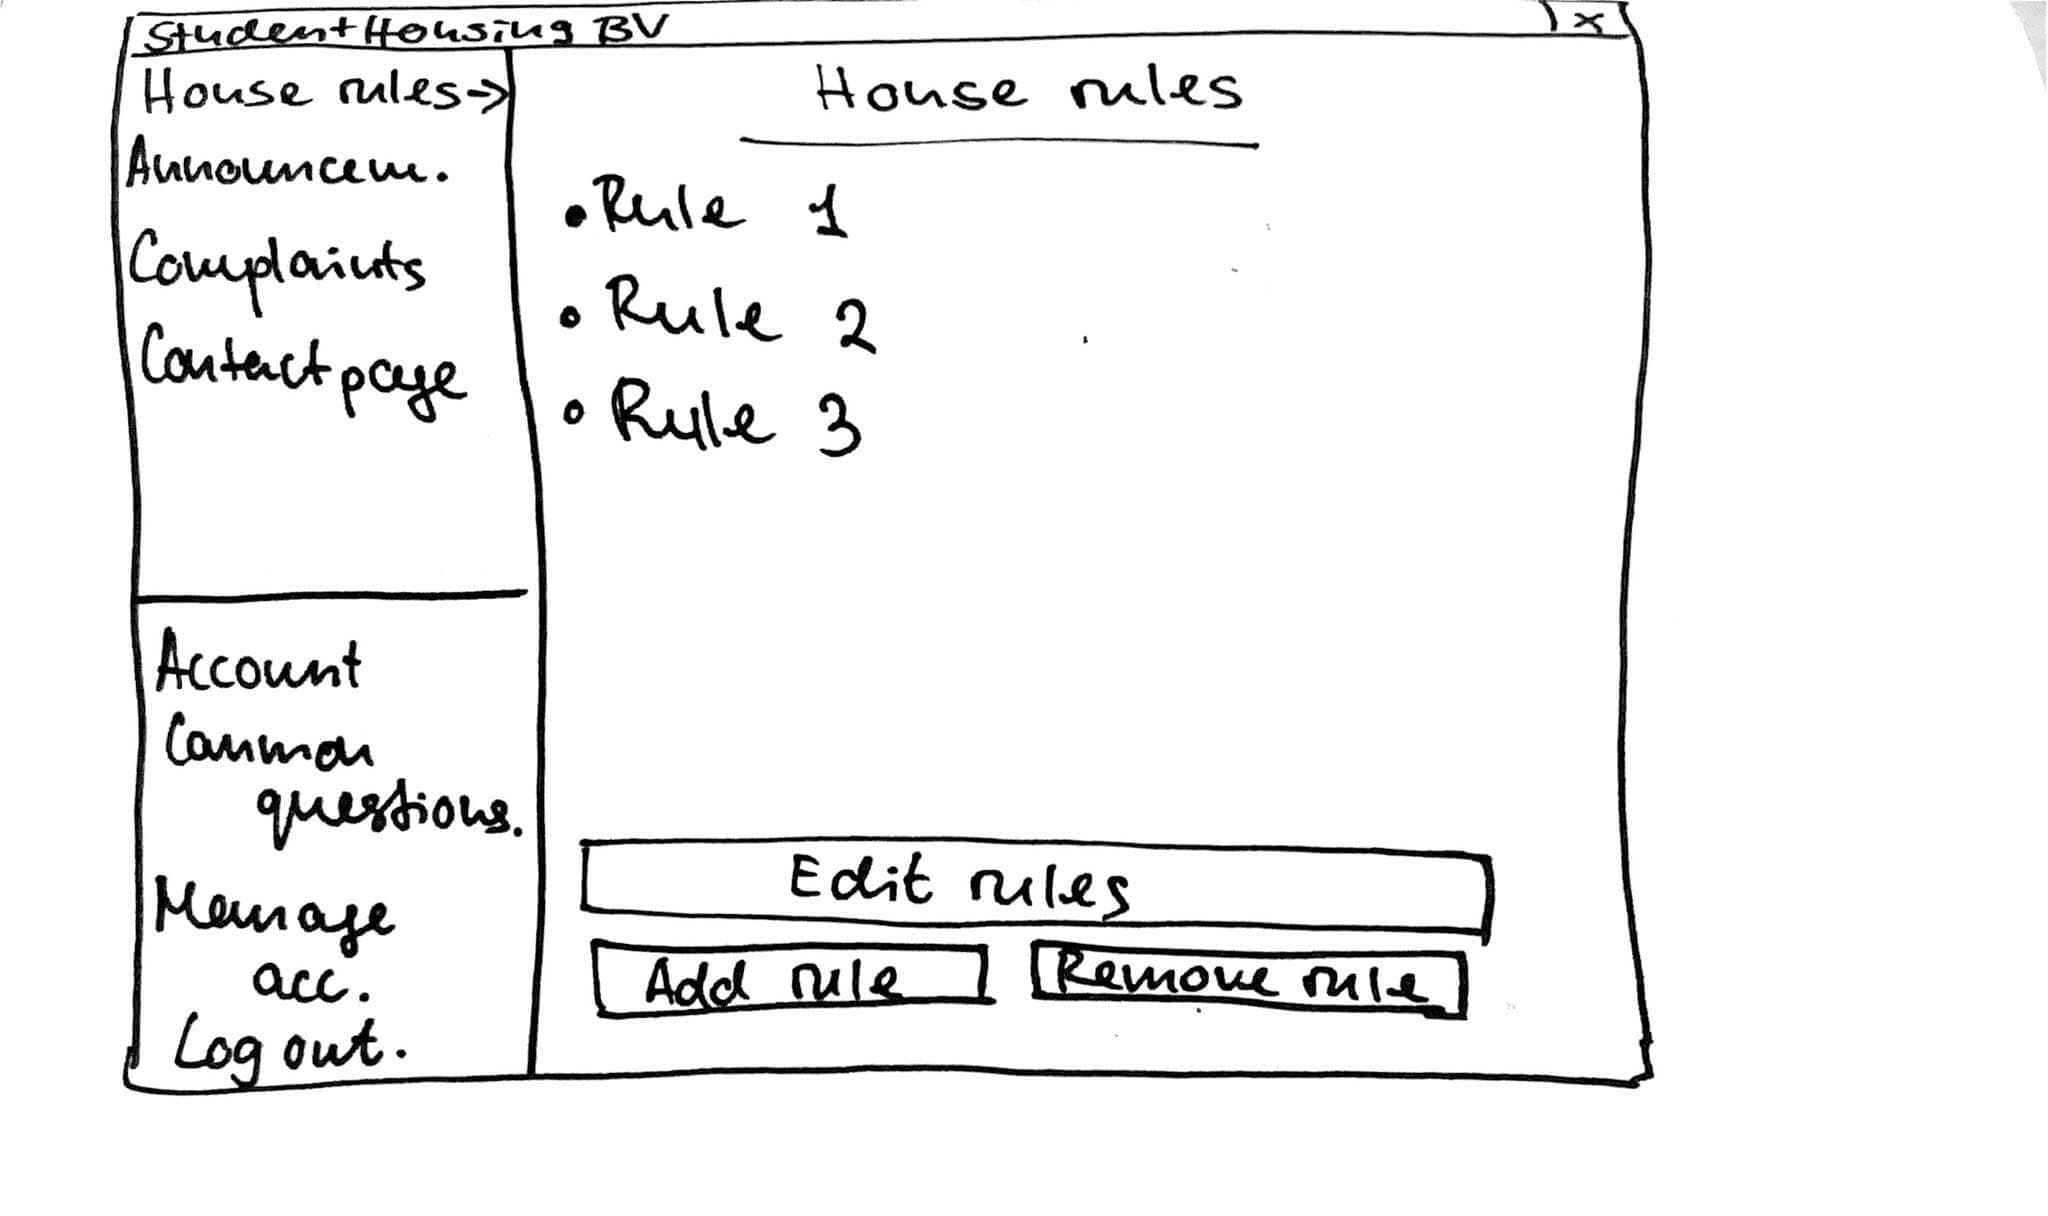 StudentHousing BV
x
House rules→
Announcem.
Complaints
Contact page
Account
Common
questions.
Manage
acc.
Log out.
House rules
• Rule 1
• Rule 2
• Rule 3
Edit rules
Add rule
Remove rule